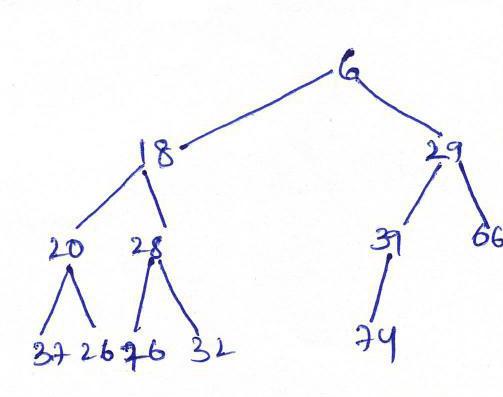 6
18 29
20 28 39 66
37 26 76 32 74